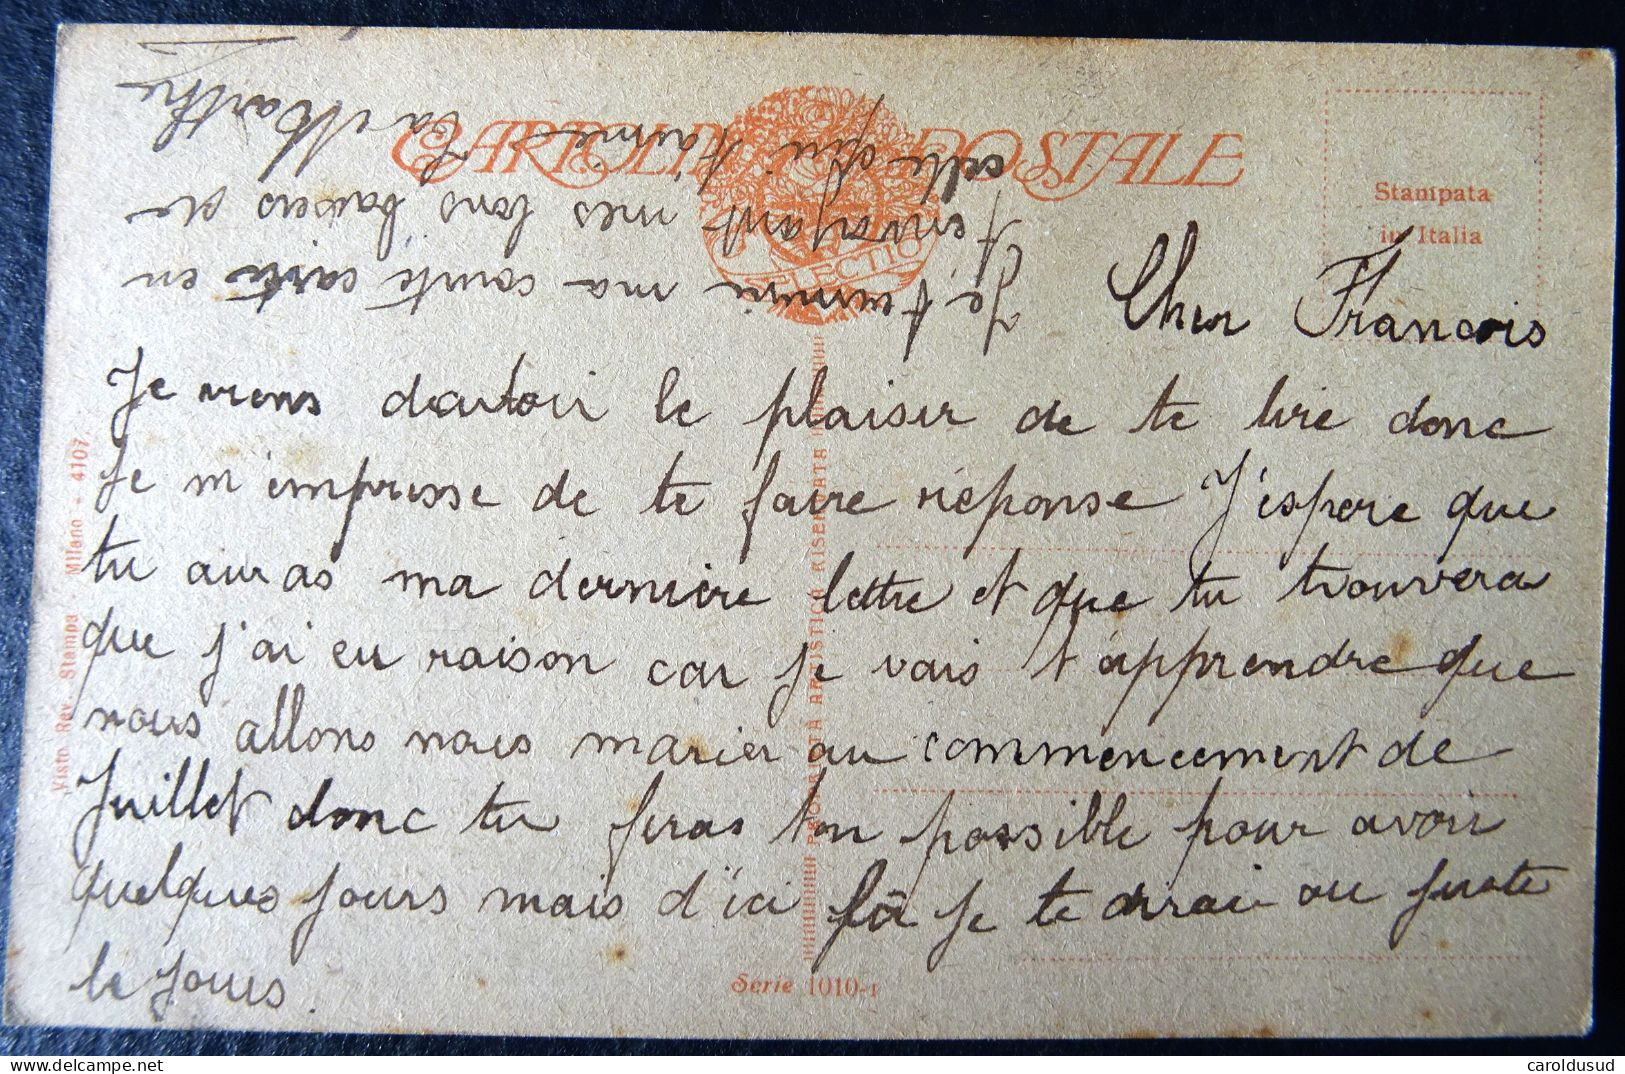 CARTOLINA POSTALE
SELECTIO
Stampata
in Italia
Cher Francois
Je viens davtoir le plaisir de te lire donc
Je m'empresse de te faire réponse J'espere que
tu auras ma dernière lettre et que tu trouvera
que j'ai eu raison car je vais t'apprendre que
nous allons nous marier au commencement de
Juillet donc tu feras ton possible pour avoir
quelques jours mais d'ici là je te dirai au juste
le jours.
Je termine ma courte carte en
t'envoyant mes bons baisers de
celle qui t'aime ta Marthe
Visto Rev. Stampa - Milano - 4107.
PROPRIETÀ ARTISTICA RISERVATA
Serie 1010-1
caroldusud